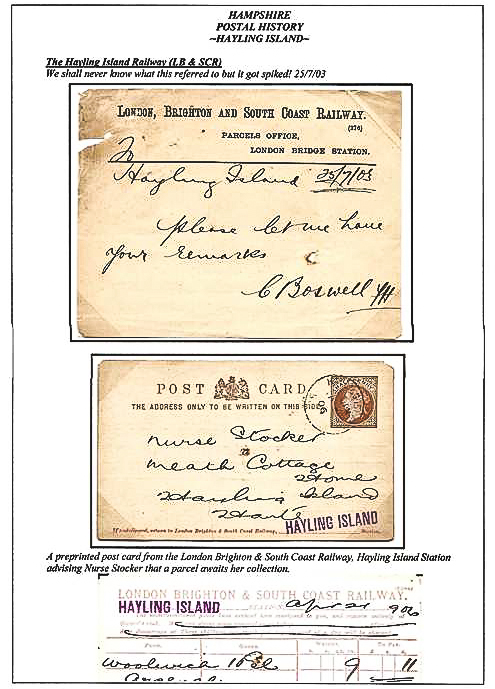 HAMPSHIRE
POSTAL HISTORY
~HAYLING ISLAND~
The Hayling Island Railway (LB & SCR)
We shall never know what this referred to but it got spiked! 25/7/03
LONDON, BRIGHTON AND SOUTH COAST RAILWAY.
(276)
PARCELS OFFICE,
LONDON BRIDGE STATION.
To
Hayling Island 25/7/03
Please let me have
your remarks
C Boswell
POST CARD
THE ADDRESS ONLY TO BE WRITTEN ON THIS SIDE
Nurse Stocker
Meath Cottage
Home
Hayling Island
Hants
If undelivered, return to London Brighton & South Coast Railway,
HAYLING ISLAND
A preprinted post card from the London Brighton & South Coast Railway, Hayling Island Station
advising Nurse Stocker that a parcel awaits her collection.
LONDON BRIGHTON & SOUTH COAST RAILWAY.
HAYLING ISLAND STATION, Apr 21 906
From. Goods. To Pay.
Woolwich 1 Pcl 9 11